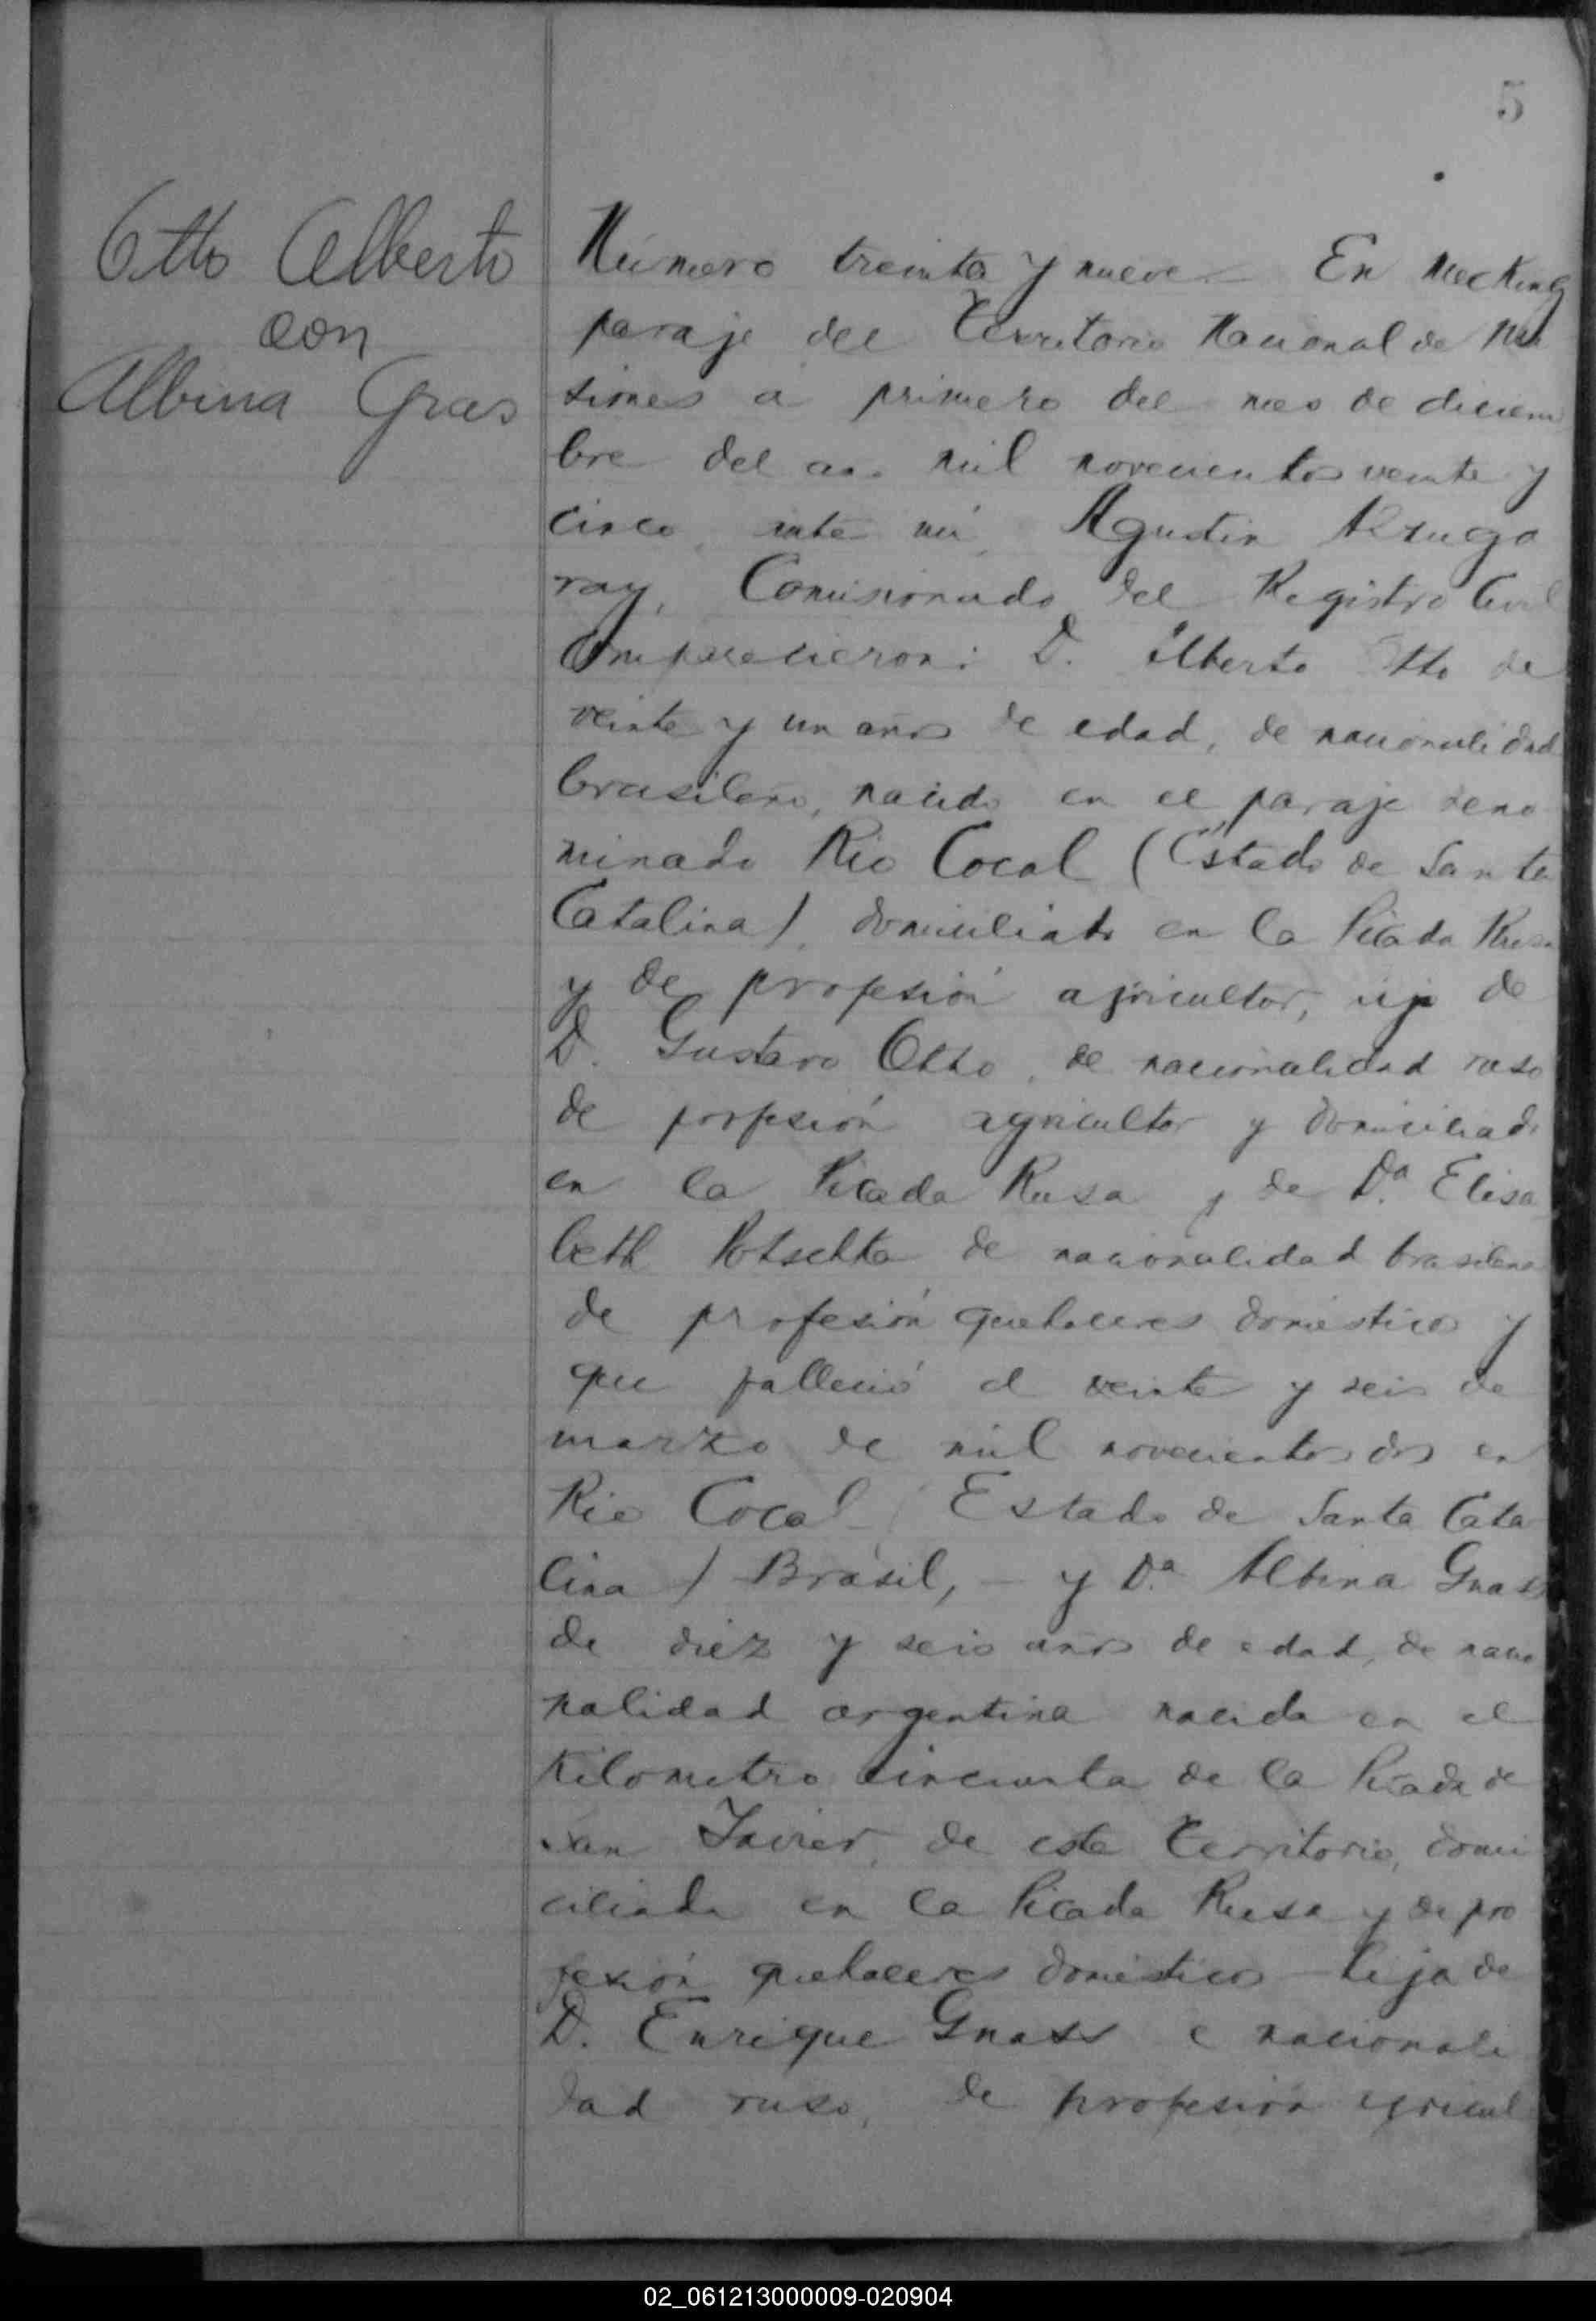 5
Otto Alberto
con
Albina Gras
Número treinta y nueve. En Mecking
paraje del Territorio Nacional de Mi
siones á primero del mes de diciem
bre del año mil novecientos veinte y
cinco, ante mí, Agustin Arzuga
ray, Comisionado del Registro Civil
Comparecieron: D. Alberto Otto de
veinte y un años de edad, de nacionalidad
brasileño, nacido en el paraje deno
minado Rio Cocal (Estado de Santa
Catalina), domiciliado en la Picada Rusa
y de profesión agricultor, hijo de
D. Gustavo Otto, de nacionalidad ruso
de porfesión agricultor y domiciliado
en la Picada Rusa y de Da. Elisa
beth de nacionalidad brasilena
de profesión quehaceres domésticos y
que falleció el veinte y seis de
marzo de mil novecientos dos en
Rio Cocal (Estado de Santa Cata
lina) Brasil, - y Da. Albina Gnass
de diez y seis años de edad, de nacio
nalidad argentina nacida en el
Kilometro cincuenta de la Picada de
San Javier, de este Territorio, domi
ciliada en la Picada Rusa y de pro
fesión quehaceres domésticos - hija de
D. Enrique Gnass e nacionali
dad ruso, de profesión agricul
02_061213000009-020904